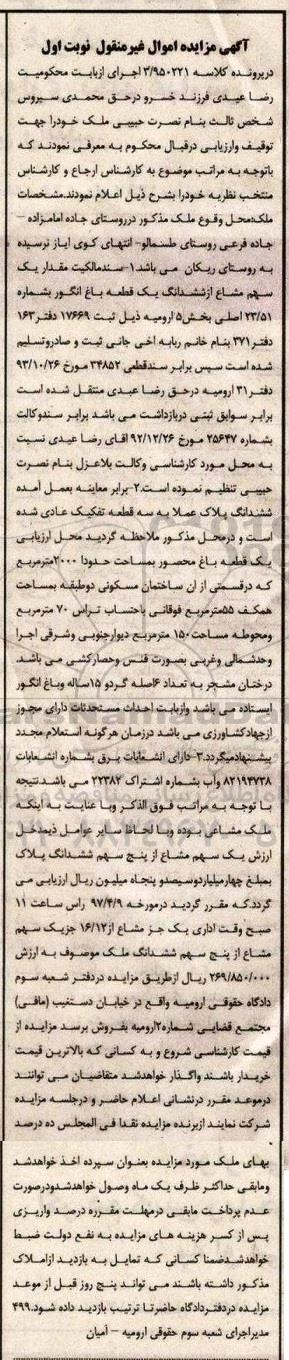 آگهی مزایده اموال غیرمنقول نوبت اول
درپرونده کلاسه ۳/۹۵۰۲۲۱ اجرای ازبابت محکومیت
رضا عبدی فرزند خسرو درحق محمدی سیروس
شخص ثالث بنام نصرت حبیبی ملک خودرا جهت
توقیف وارزیابی درقبال محکوم به معرفی نمودند که
باتوجه به مراتب موضوع به کارشناس ارجاع و کارشناس
منتخب نظریه خودرا بشرح ذیل اعلام نمودند.مشخصات
ملک:محل وقوع ملک مذکور درروستای جاده امامزاده –
جاده فرعی روستای طسمالو- انتهای کوی ایاز نرسیده
به روستای ریکان می باشد.۱-سندمالکیت مقدار یک
سهم مشاع ازششدانگ یک قطعه باغ انگور بشماره
۲۳/۵۱ اصلی بخش۵ ارومیه ذیل ثبت ۱۷۶۶۹ دفتر۱۶۳
دفتر۳۷۱ بنام خانم ربابه اخی جانی ثبت و صادروتسلیم
شده است سپس برابر سندقطعی ۳۴۸۵۲ مورخ ۹۳/۱۰/۲۶
دفتر۳۱ ارومیه درحق رضا عبدی منتقل شده است
برابر سوابق ثبتی دربازداشت می باشد برابر سندوکالت
بشماره ۲۵۶۴۷ مورخ ۹۲/۱۲/۲۶ اقای رضا عبدی نسبت
به محل مورد کارشناسی وکالت بلاعزل بنام نصرت
حبیبی تنظیم نموده است.۲-برابر معاینه بعمل آمده
ششدانگ پلاک عملا به سه قطعه تفکیک عادی شده
است و درمحل مذکور ملاحظه گردید محل ارزیابی
یک قطعه باغ محصور بمساحت حدودا ۲۰۰۰مترمربع
که درقسمتی از ان ساختمان مسکونی دوطبقه بمساحت
همکف ۵۵مترمربع فوقانی باحتساب تراس ۷۰ مترمربع
ومحوطه مساحت۱۵۰ مترمربع دیوارجنوبی وشرقی اجرا
وحدشمالی وغربی بصورت فنس وحصارکشی می باشد.
درختان مشجر به تعداد ۶اصله گردو ۱۵ساله وباغ انگور
ایستاده می باشد وازبابت احداث مستحدثات دارای مجوز
ازجهادکشاورزی می باشد درزمان هرگونه استعلام مجدد
پیشنهادمیگردد.۳-دارای انشعابات برق بشماره انشعابات
۸۲۱۹۴۷۳۸ وآب بشماره اشتراک ۲۲۳۸۲ می باشد.نتیجه
با توجه به مراتب فوق الذکر وبا عنایت به اینکه
ملک مشاعی بوده وبا لحاظ سایر عوامل ذیمدخل
ارزش یک سهم مشاع از پنج سهم ششدانگ پلاک
بمبلغ چهارمیلیاردوسیصدو پنجاه میلیون ریال ارزیابی می
گرددکه مقرر گردید درمورخه ۹۷/۴/۹ راس ساعت ۱۱
صبح وقت اداری یک جز مشاع از۱۶/۱۲ جزیک سهم
مشاع از پنج سهم ششدانگ ملک موصوف به ارزش
۲۶۹/۸۵۰/۰۰۰ ریال ازطریق مزایده دردفتر شعبه سوم
دادگاه حقوقی ارومیه واقع در خیابان دستغیب (مافی)
مجتمع قضایی شماره۲ارومیه بفروش برسد مزایده از
قیمت کارشناسی شروع و به کسانی که بالاترین قیمت
خریدار باشند واگذار خواهدشد متقاضیان می توانند
درموعد مقرر درنشانی اعلام حاضر و درجلسه مزایده
شرکت نمایند ازبرنده مزایده نقدا فی المجلس ده درصد
بهای ملک مورد مزایده بعنوان سپرده اخذ خواهدشد
ومابقی حداکثر ظرف یک ماه وصول خواهدشدودرصورت
عدم پرداخت مابقی درمهلت مقرره درصد واریزی
پس از کسر هزینه های مزایده به نفع دولت ضبط
خواهدشدضمنا کسانی که تمایل به بازدید ازاملاک
مذکور داشته باشند می تواند پنج روز قبل از موعد
مزایده دردفتردادگاه حاضرتا ترتیب بازدید داده شود.۴۹۹
مدیراجرای شعبه سوم حقوقی ارومیه – آمیان